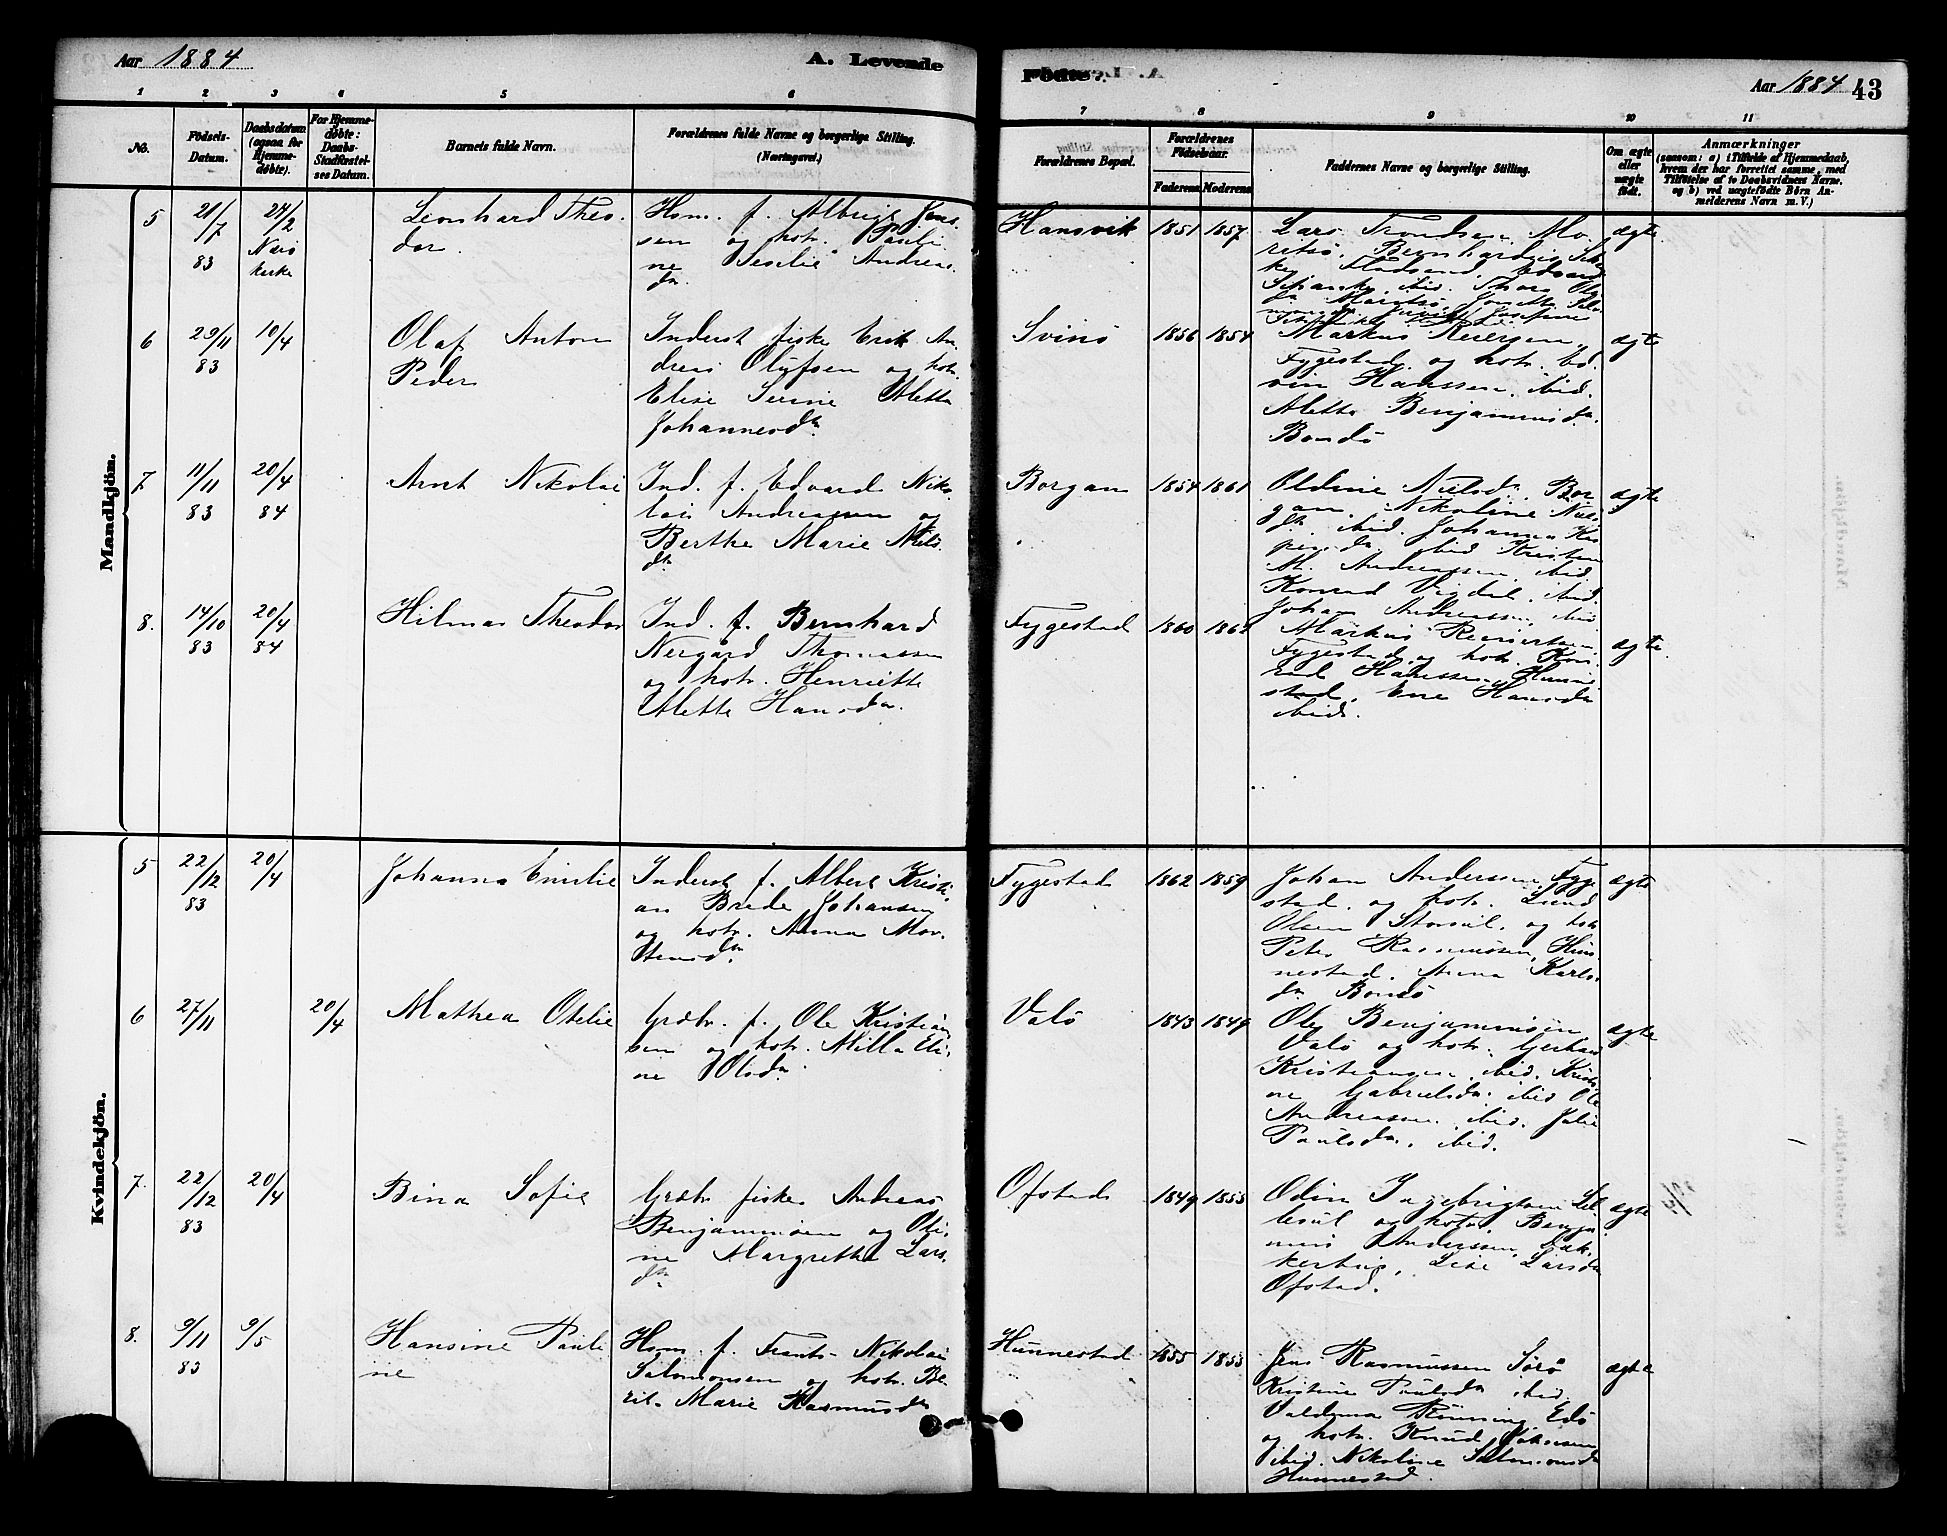 Aar 1884
A. Levende
Fødte.
Aar 1884 43
1 2 3 4 5 6 7 8 9 10 11
No.
Fødsels-
Datum.
Daabsdatum
(ogsaa for
Hjemme-
døbte).
For Hjemme-
døbte:
Daabs-
Stadfæstel-
ses Datum.
Barnets fulde Navn.
Forældrenes fulde Navne og borgerlige Stilling.
(Næringsvei.)
Forældrenes Bopæl.
Forældrenes
Fødselsaar.
Faderens Moderens
Faddernes Navne og borgerlige Stilling.
Om ægte
eller
uægte
født.
Anmærkninger
(saasom: a) i Tilfælde af Hjemmedaab,
hvem der har forrettet samme, med
Tilføielse af to Daabsvidners Navne,
og b) ved uægtefødte Børn An-
melderens Navn m. V.)
Mandkjön.
5
21/7
83
24/2
Nærö
kirke
Leonhard Theo-
dor
Hsm. f. Albrigt Jens-
sen og hstr. Pauli
ne Cesilie Andreas-
dr.
Hansvik
1851 1857
Lars Trondsen, Mo-
ægte
6
29/11
83
10/4
Olaf Anton
Peder
Inderst fisker Erik An-
dreas Olufsen og hstr.
Elise Serine Aletta
Johannesdr
Svinö
1856 1854
Markus Reiersen,
Fygestad og hstr. Ed-
vin Hanssen, ibid.
Alette Benjaminsdr.
Bondö
ægte
7
11/11
83
20/4
84
Arnt Nikolai
Ind. f. Edvard Niko-
lai Andreassen og
Berthe Marie Niels-
dr
Borgan
1854 1861
Oldine Nielsdr. Bor
gan, Nikoline Niels-
dr. ibid. Johanna Kas
persdr ibid Kristen
M. Andreassen, ibid
Konrad Vigdal, ibid.
Johan Andreassen, ibid
ægte
8.
14/10
83
20/4
84
Hilmar Theodor
Ind. f. Bernhard
Neegard Thomassen
og hstr. Henriette
Alette Hansdr.
Fygestad
1860
Markus Reiersen
Fygestad, og hstr. Kon-
rad Hanssen, Hunne
stad, Ene Hansdr
ibid.
ægte
Kvindekjön.
5
22/12
83
20/4
Johanna Emilie
Inderst f. Albert Kristi-
an Brede Johansen
og hstr. Anna Mor-
tensdr.
Fygestad
1862 1859
Johan Anderssen, Fyge
stad, og hstr. Lund
Olsen Storsul, og hstr
Peter Rasmussen, Hun-
nestad, Anna Karls-
dr Bondö
ægte
6
27/11
20/4
Mathea Otelie
Grdbr. f. Ole Kristian-
sen og hstr. Milla Eli-
ne Olsdr.
Valö
1843 1849
Ole Benjaminsen
Valö og hstr. Gerhard
Kristiansen, ibid. Kristi-
ne Gabrielsdr. ibid Ole
Andreassen ibid. Julie
Paulsdr, ibid.
ægte
7.
22/12
83
20/4
Bina Sofie
Grdbr fisker Andreas
Benjaminsen og Oli-
ne Margrethe Lars-
dr.
Ofstad
1849 1853
Odin Ingebrigtsen Lil
lesul og hstr, Benja
min Anderssen,
Lise Larsdr
Ofstad.
ægte
8.
9/11
83
9/5
Hansine Pauli
ne
Hsm. f. Frants Nikolai
Salomonsen og hstr. Be-
rit Marie Rasmusdr
Hunnestad
1855 1853
Jens Rasmussen Sörö
Kristine Paulsdr ibid
Valdema Rönning, Edö
og hstr. Knud Johnsen
ibid. Nikoline Salomonsdr
Hunnestad.
ægte